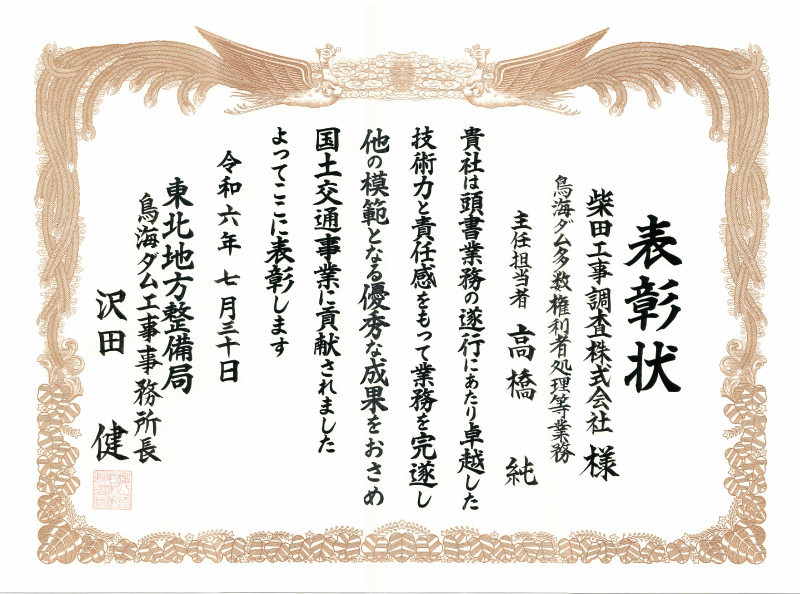 表彰状
柴田工事調査株式会社 様
鳥海ダム多数権利者処理等業務
主任担当者 高橋 純
貴社は頭書業務の遂行にあたり卓越した
技術力と責任感をもって業務を完遂し
他の模範となる優秀な成果をおさめ
国土交通事業に貢献されました
よってここに表彰します
令和六年 七月三十日
東北地方整備局
鳥海ダム工事事務所長
沢田 健